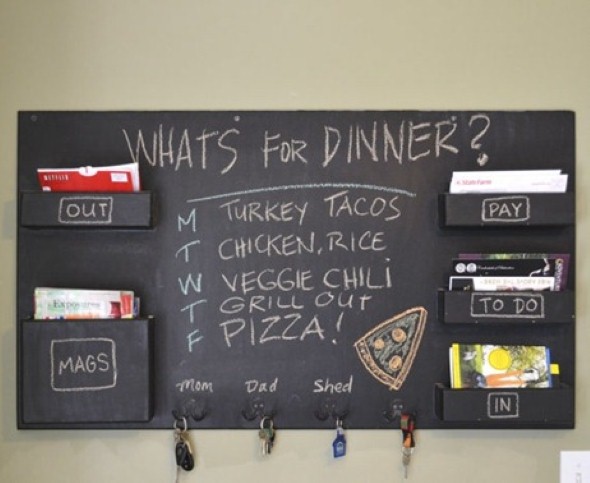 WHATS FOR DINNER?
NETFLIX
OUT
State Farm
PAY
M TURKEY TACOS
T CHICKEN, RICE
W VEGGIE CHILI
T GRILL OUT
F PIZZA!
TO DO
MAGS
IN
Mom Dad Shed